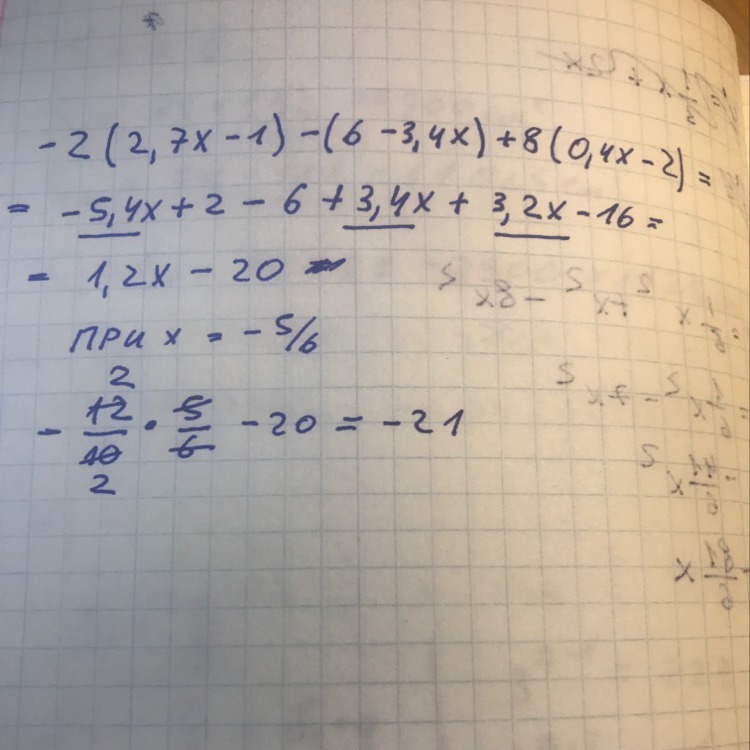 -2(2,7x-1)-(6-3,4x)+8(0,4x-2)=
= -5,4x+2-6+3,4x+3,2x-16=
= 1,2x-20
ПРИ x = -5/6
2
- 12/10 · 5/6 -20 = -21
2